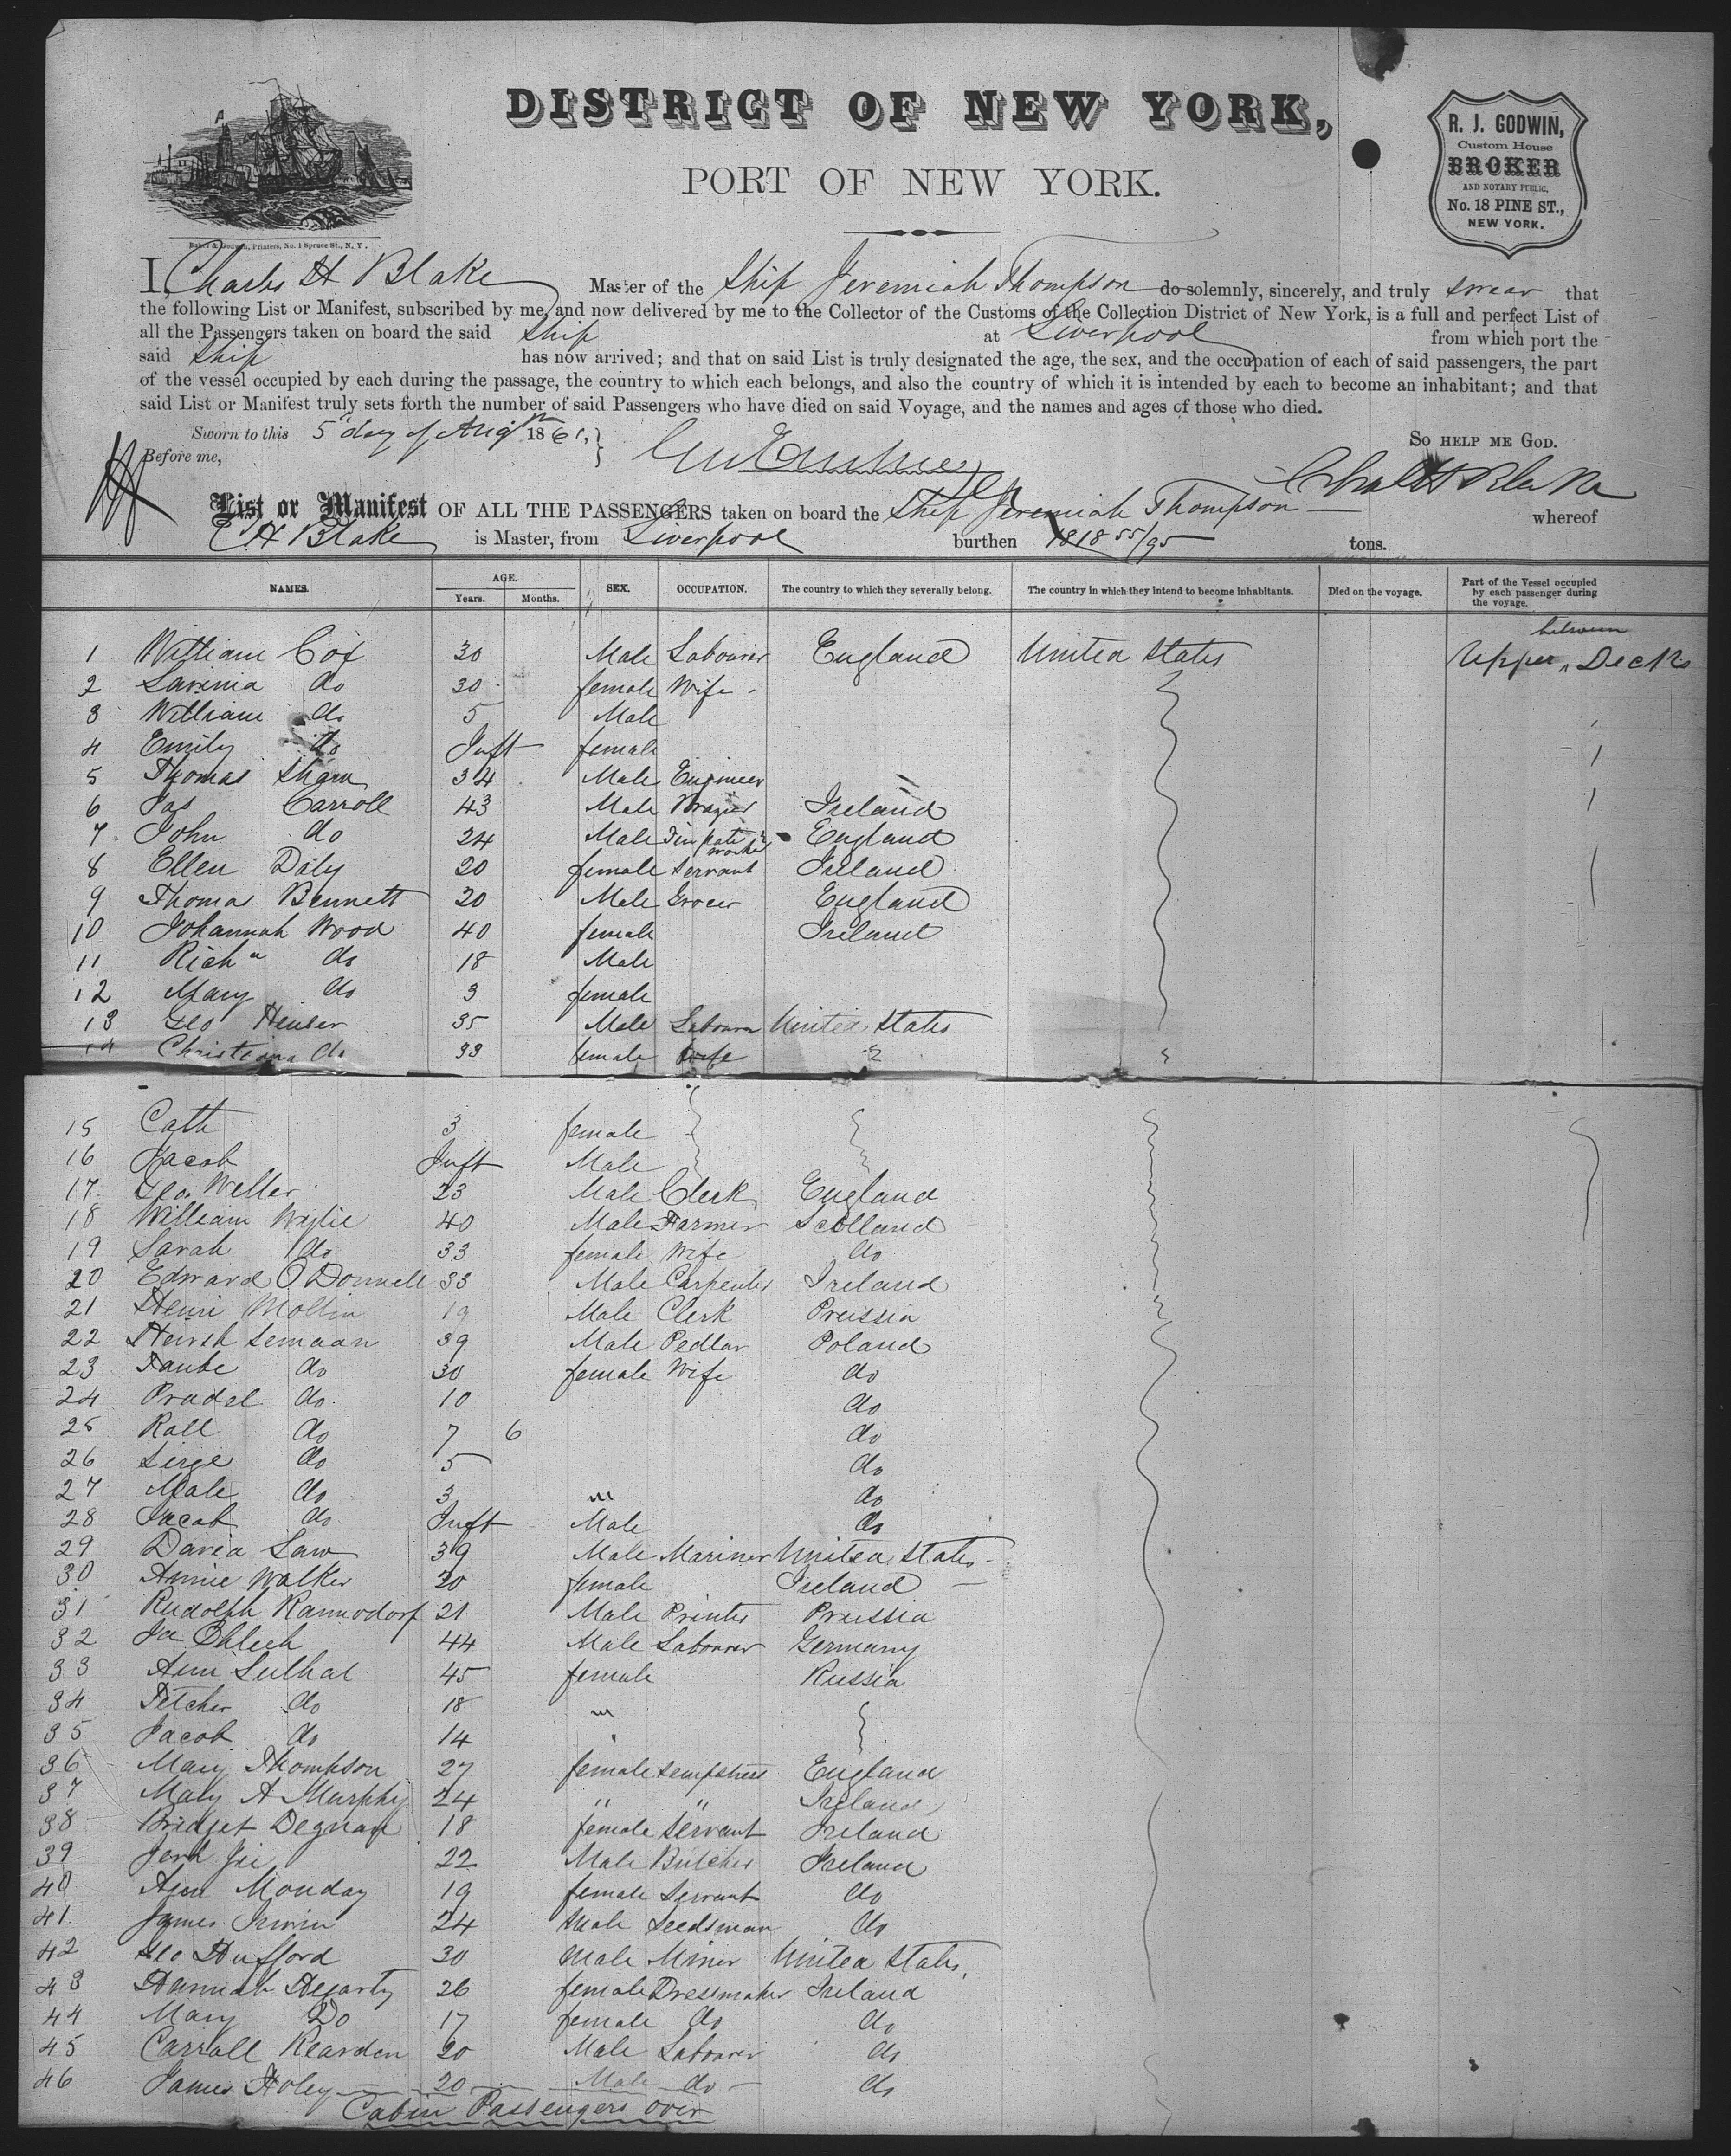 DISTRICT OF NEW YORK,
PORT OF NEW YORK.
R. J. GODWIN,
Custom House
BROKER
AND NOTARY PUBLIC,
No. 18 PINE ST.,
NEW YORK.
Baker & Godwin, Printers, No. 1 Spruce St., N. Y.
I, Charles H Blake Master of the Ship Jeremiah Thompson do solemnly, sincerely, and truly swear that
the following List or Manifest, subscribed by me, and now delivered by me to the Collector of the Customs of the Collection District of New York, is a full and perfect List of
all the Passengers taken on board the said Ship at Liverpool from which port the
said Ship has now arrived; and that on said List is truly designated the age, the sex, and the occupation of each of said passengers, the part
of the vessel occupied by each during the passage, the country to which each belongs, and also the country of which it is intended by each to become an inhabitant; and that
said List or Manifest truly sets forth the number of said Passengers who have died on said Voyage, and the names and ages of those who died.
Sworn to this 5 day of Aug 1861, SO HELP ME GOD.
Before me,
List or Manifest OF ALL THE PASSENGERS taken on board the Ship Jeremiah Thompson whereof
C H Blake is Master, from Liverpool burthen 1818 55/95 tons.
NAMES. AGE. Years. Months. SEX. OCCUPATION. The country to which they severally belong. The country in which they intend to become inhabitants. Died on the voyage. Part of the Vessel occupied by each passenger during the voyage.
1 William Cox 30 Male Labourer England United States Upper between Decks
2 Lavinia do 30 female Wife
3 William do 5 Male
4 Emily do Inft female
5 Thomas Sham 34 Male Engineer
6 Jas Carroll 43 Male Brazier Ireland
7 John do 24 Male Tin plate worker England
8 Ellen Daly 20 female Servant Ireland
9 Thomas Bennett 20 Male Grocer England
10 Johannah Wood 40 female Ireland
11 Richd do 18 Male
12 Mary do 3 female
13 Geo Heuser 35 Male Labourer United States
14 Christiana do 33 female Wife
15 Cath 3 female
16 Jacob Inft Male
17 Geo. Weller 23 Male Clerk England
18 William Wylie 40 Male Farmer Scotland
19 Sarah do 33 female Wife do
20 Edward O'Donnell 33 Male Carpenter Ireland
21 Henri Mollin 19 Male Clerk Prussia
22 Heirsh Semaan 39 Male Pedlar Poland
23 Taube do 30 female Wife do
24 Pradel do 10 do
25 Rall do 7 6 do
26 Sirge do 5 do
27 Male do 3 do
28 Jacob do Inft Male do
29 David Law 39 Male Mariner United States
30 Annie Walker 20 female Ireland
31 Rudolph Ramsdorf 21 Male Printer Prussia
32 44 Male Labourer Germany
33 Ann 45 female Russia
34 do 18
35 Jacob do 14
36 Mary Thompson 27 female Sempstress England
37 Mary A Murphy 24 " " Ireland
38 Bridget Degnan 18 female Servant Ireland
39 22 Male Butcher Ireland
40 Ann Monday 19 female Servant do
41 James Irwin 24 Male Seedsman do
42 Geo Hufford 30 Male Miner United States
43 Hannah Hegarty 26 female Dressmaker Ireland
44 Mary Do 17 female do do
45 Carroll Rearden 20 Male Labourer do
46 James Foley 20 Male do do
Cabin Passengers over